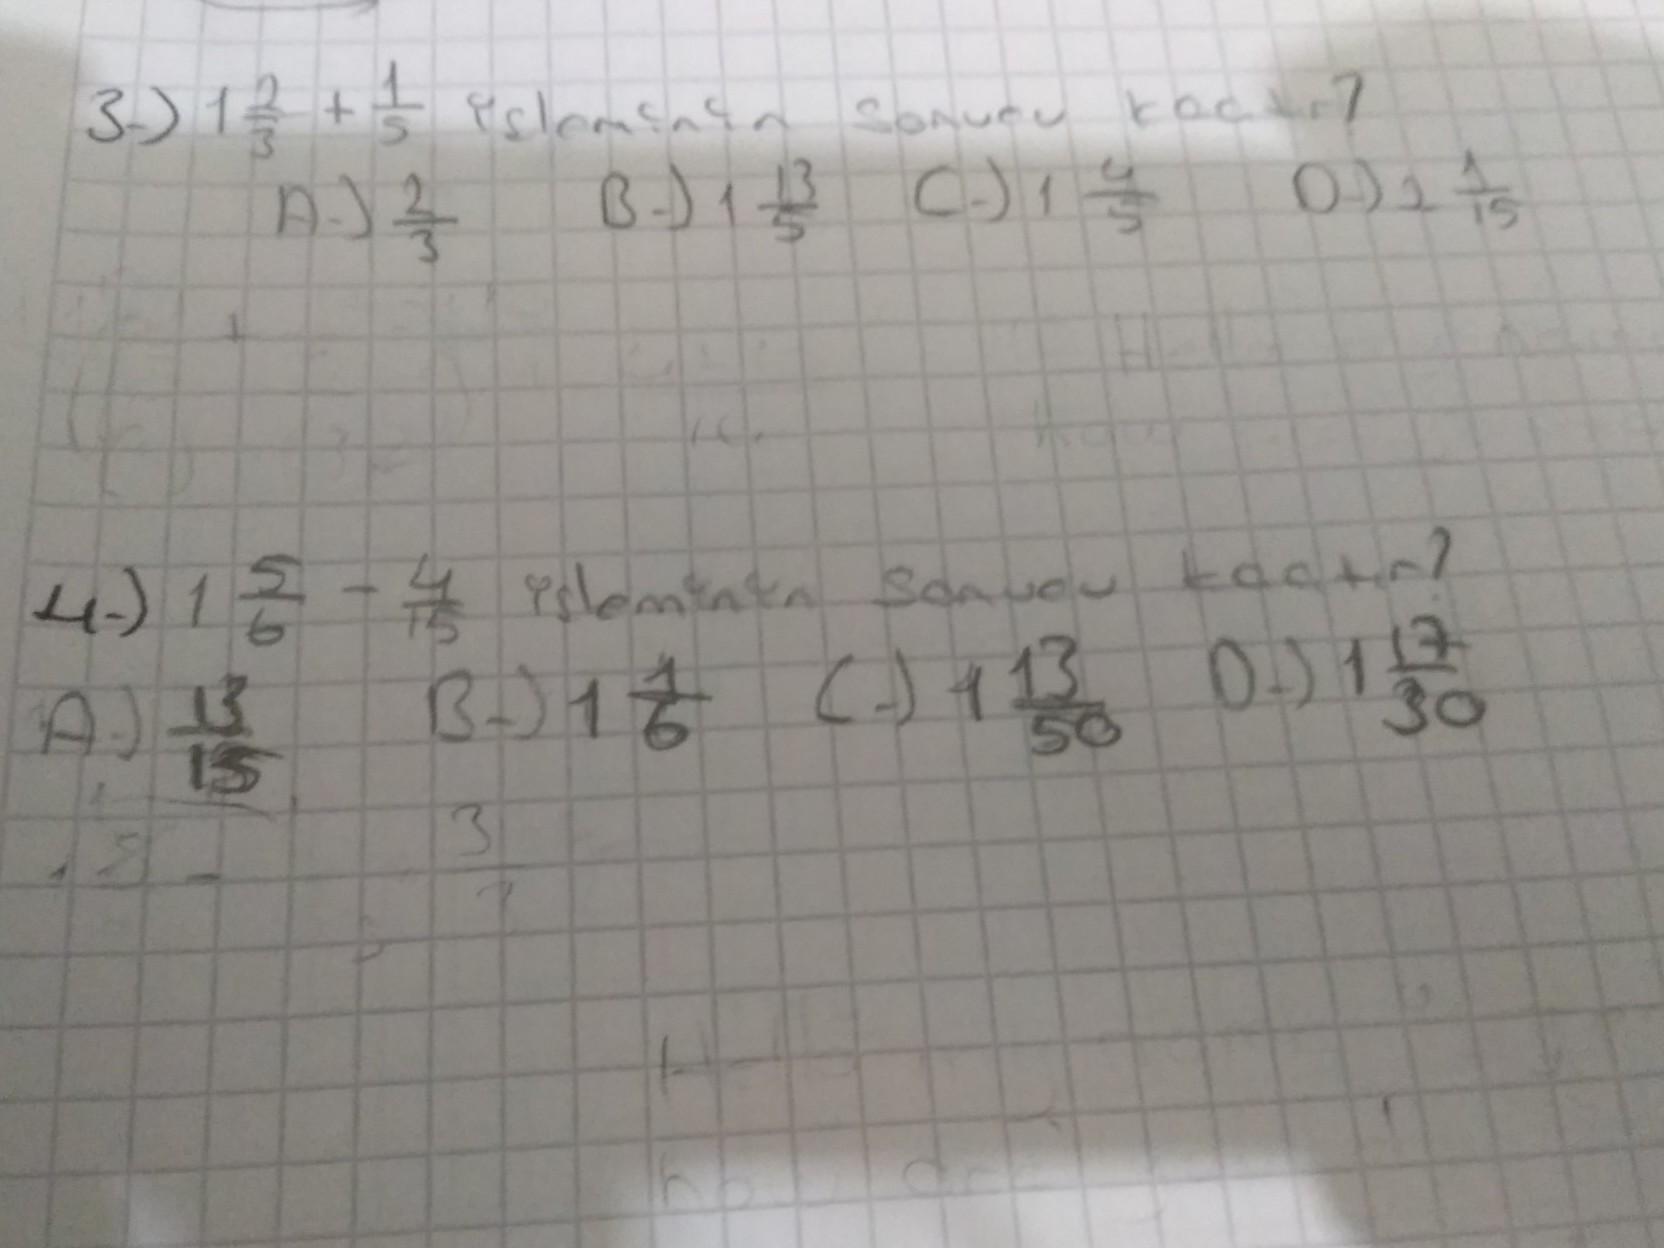 3-) 1 2/3 + 1/5 işleminin sonucu kaçtır?
A-) 2/3 B-) 1 13/5 C-) 1 4/5 D-) 2 1/15
4-) 1 5/6 - 4/15 işleminin sonucu kaçtır?
A-) 13/15 B-) 1 1/6 C-) 1 13/50 D-) 1 17/30
3